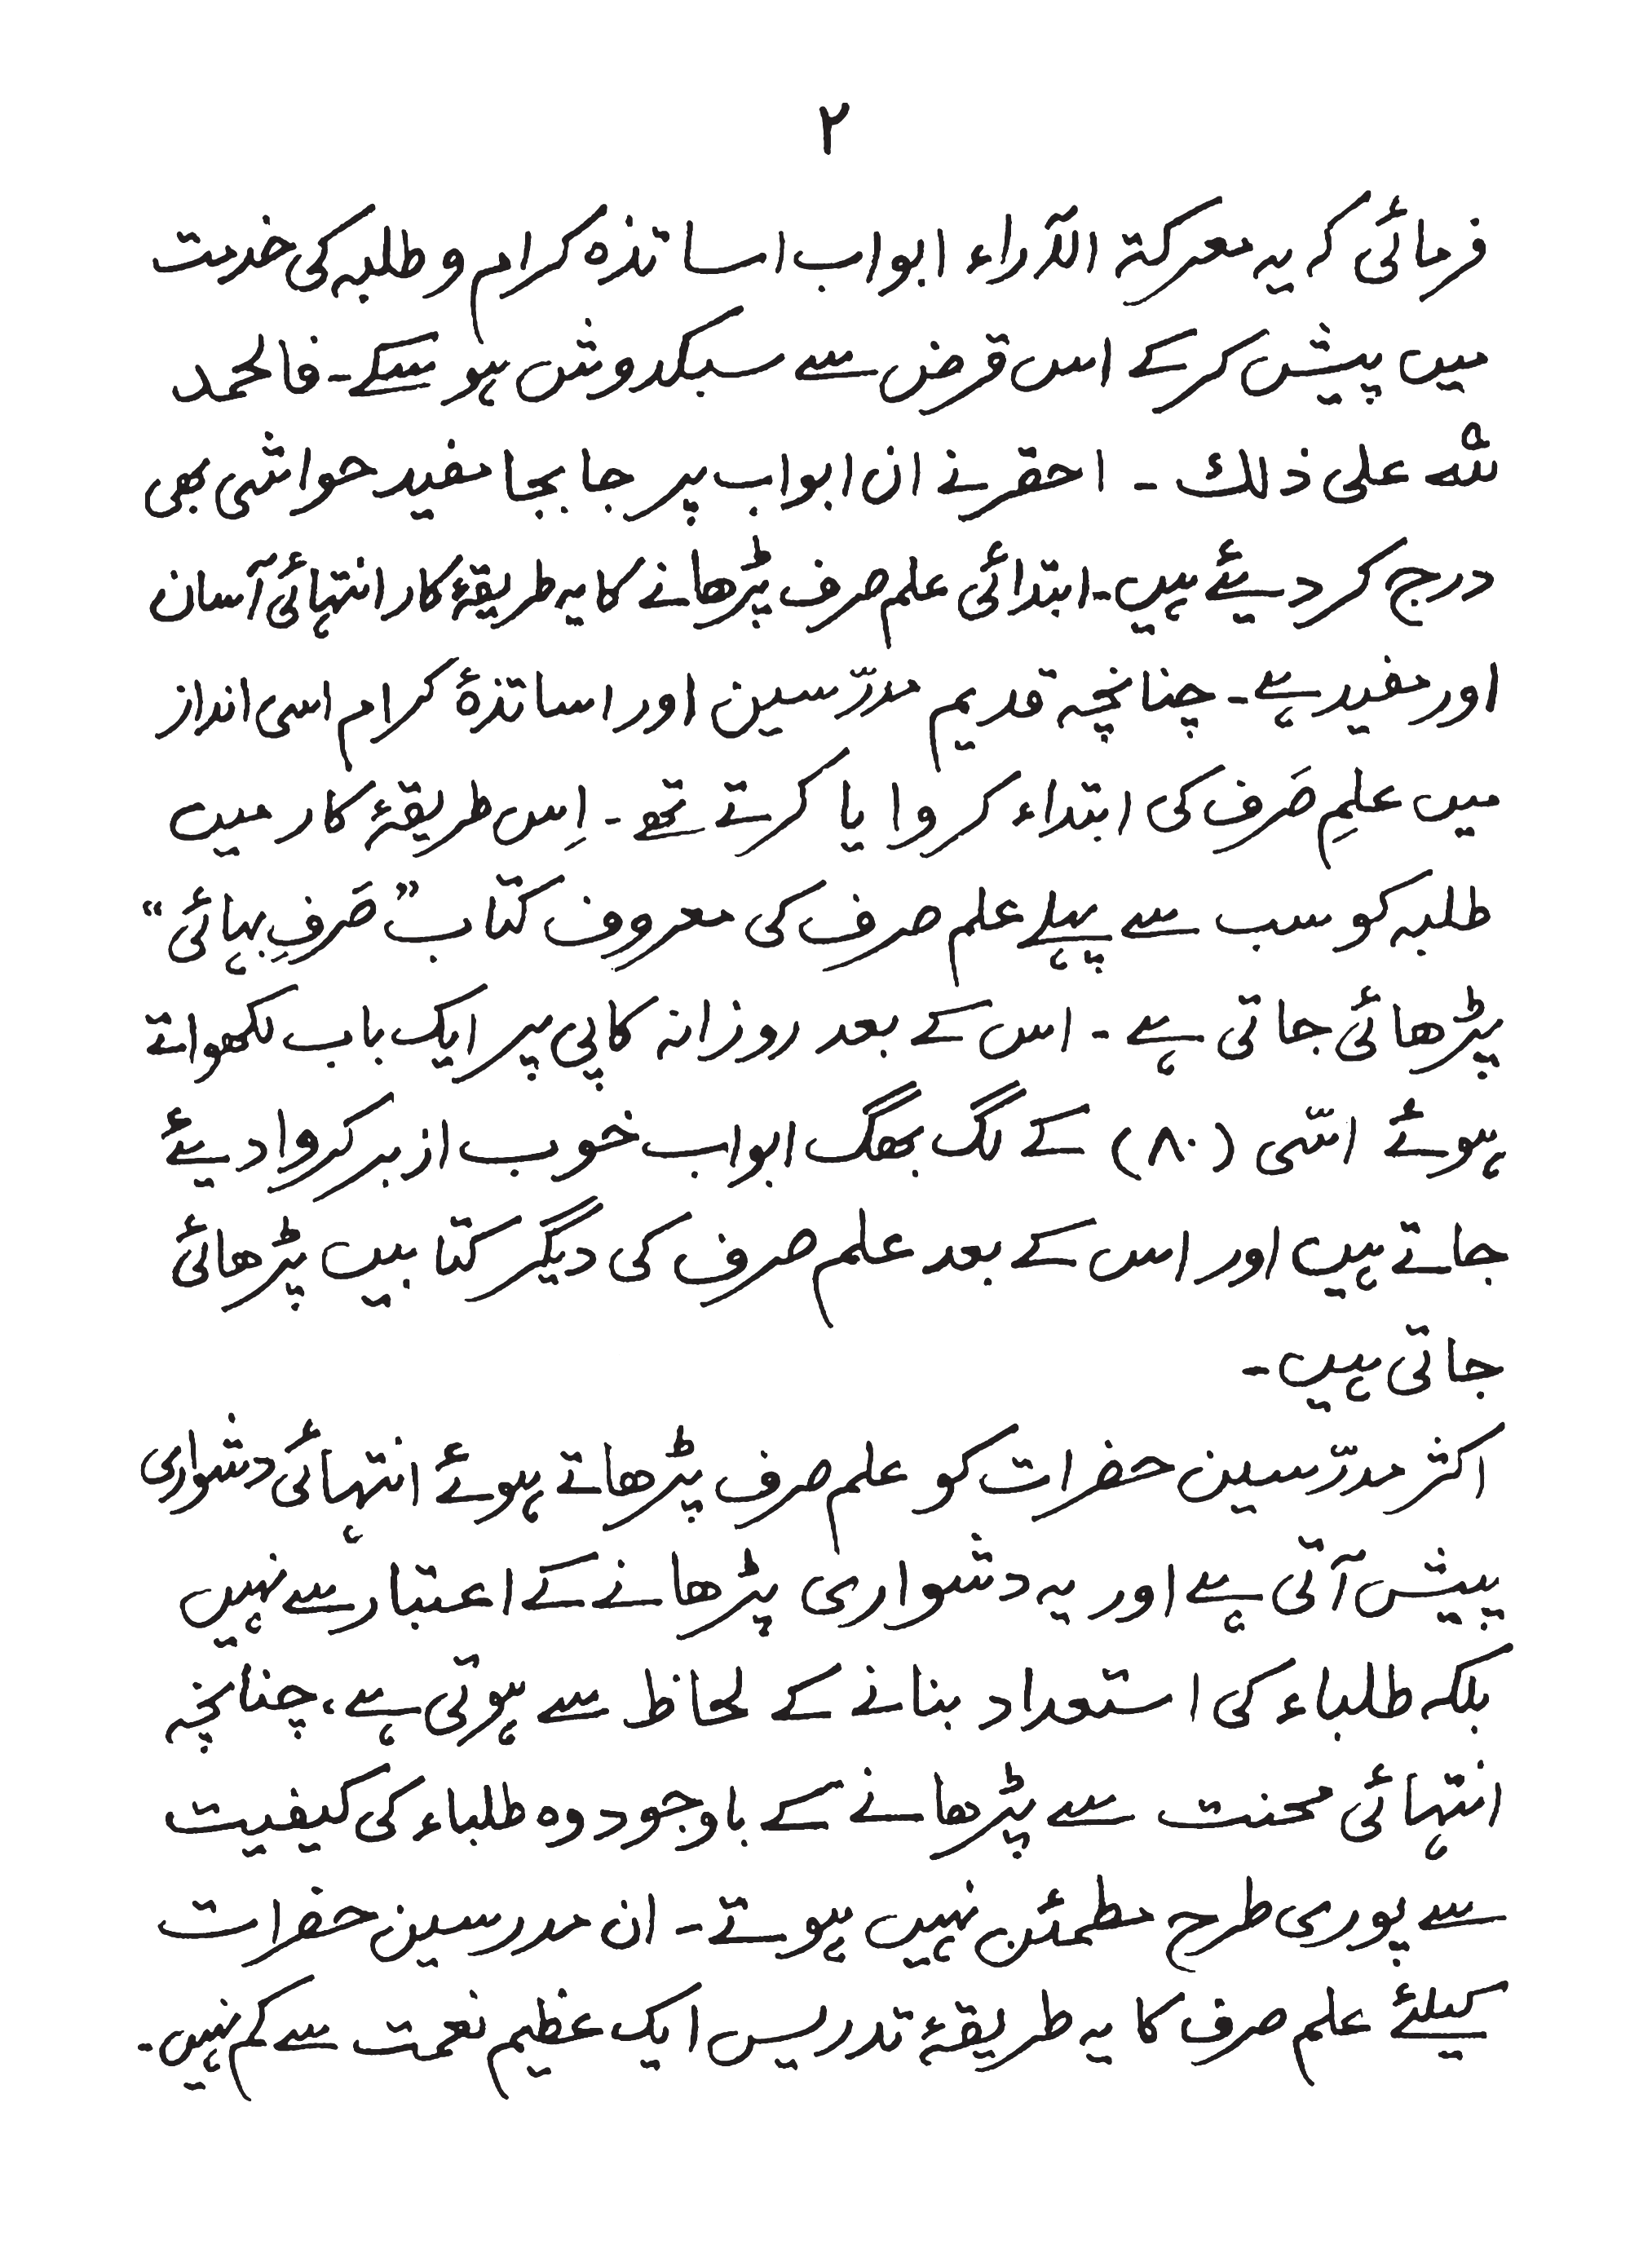 ۲
فرمائی کہ یہ معرکۃ الآراء ابواب اساتذہ کرام و طلبہ کی خدمت
میں پیش کرکے اس قرض سے سبکدوش ہو سکے۔ فالحمد
للہ علی ذلك ۔ احقر نے ان ابواب پر جا بجا مفید حواشی بھی
درج کر دیئے ہیں۔ ابتدائی علم صرف پڑھانے کا یہ طریقۂ کار انتہائی آسان
اور مفید ہے۔ چنانچہ قدیم مدرّسین اور اساتذۂ کرام اسی انداز
میں علمِ صَرف کی ابتداء کروایا کرتے تھے ۔ اِس طریقۂ کار میں
طلبہ کو سب سے پہلے علم صرف کی معروف کتاب ”صَرفِ بہائی“
پڑھائی جاتی ہے ۔ اس کے بعد روزانہ کاپی پر ایک باب لکھواتے
ہوئے اسّی (۸۰) کے لگ بھگ ابواب خوب ازبر کروا دیئے
جاتے ہیں اور اس کے بعد علم صرف کی دیگر کتابیں پڑھائی
جاتی ہیں ۔
اکثر مدرّسین حضرات کو علم صرف پڑھاتے ہوئے انتہائی دشواری
پیش آتی ہے اور یہ دشواری پڑھانے کے اعتبار سے نہیں
بلکہ طلباء کی استعداد بنانے کے لحاظ سے ہوتی ہے، چنانچہ
انتہائی محنت سے پڑھانے کے باوجود وہ طلباء کی کیفیت
سے پوری طرح مطمئن نہیں ہوتے ۔ ان مدرسین حضرات
کیلئے علم صرف کا یہ طریقۂ تدریس ایک عظیم نعمت سے کم نہیں ۔